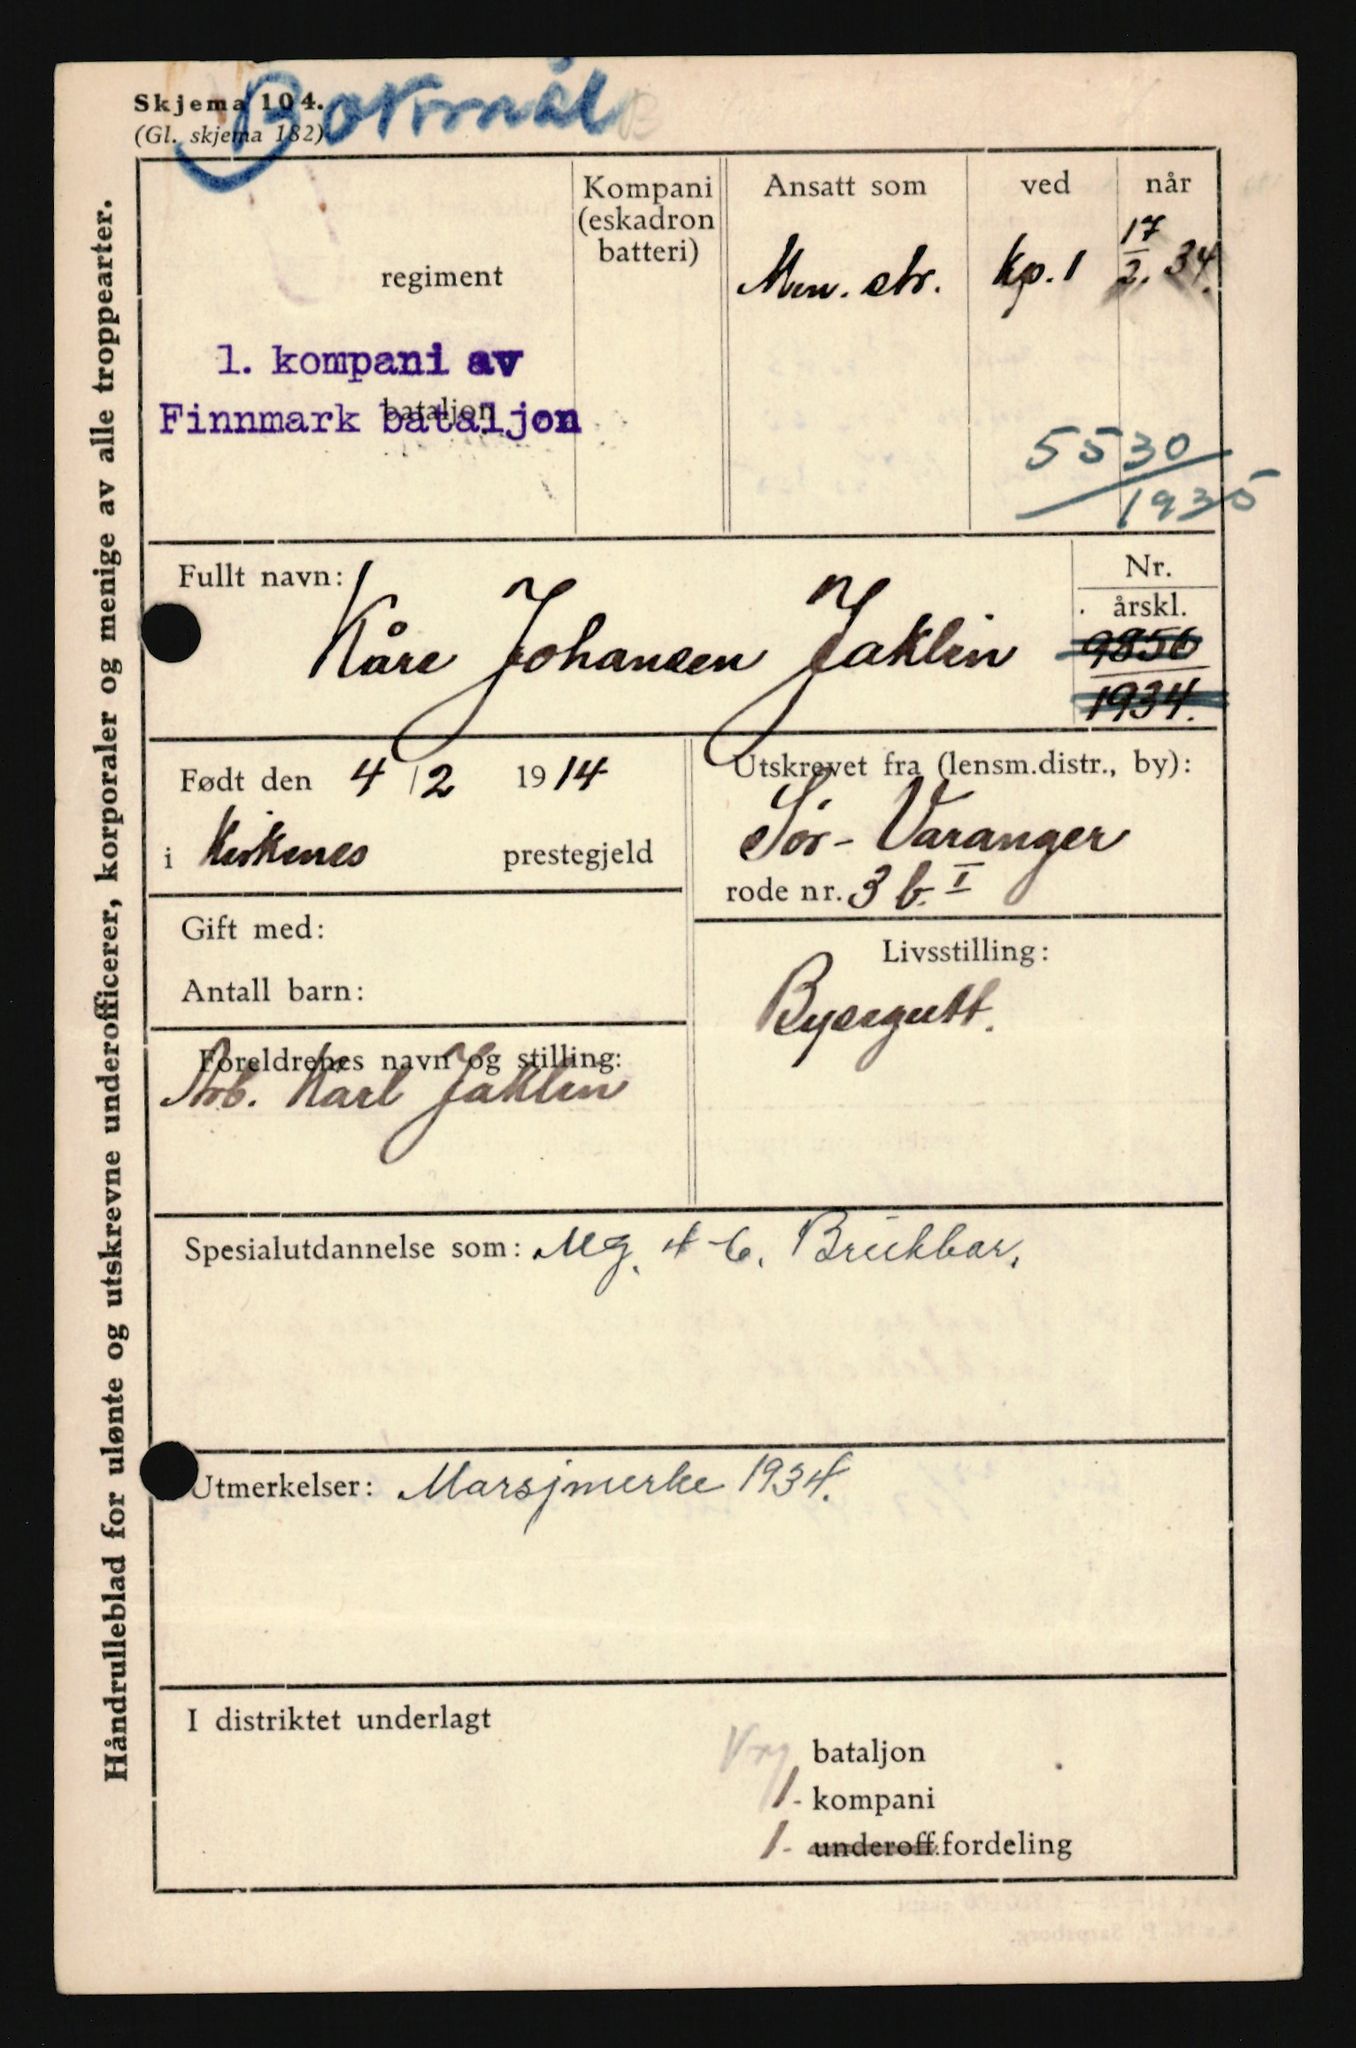 Bokmål
Skjema 104.
(Gl. skjema 182)
Håndrulleblad for ulønte og utskrevne underofficerer, korporaler og menige av alle troppearter.
regiment
1. kompani av
bataljon
Finnmark bataljon
Kompani
(eskadron
batteri)
Ansatt som
ved
når
Men. str.
Kp. 1
17/2. 34.
5530
1935
Fullt navn:
Kåre Johansen Jaklin
Nr.
årskl.
9856
1934.
Født den 4/2 1914
i Kirkenes prestegjeld
Utskrevet fra (lensm.distr., by):
Sør-Varanger
rode nr. 3 b. I
Gift med:
Antall barn:
Livsstilling:
Bysergutt.
Foreldrenes navn og stilling:
Arb. Karl Jaklin
Spesialutdannelse som: Mg. 4-6. Brukbar.
Utmerkelser: Marsjmerke 1934.
I distriktet underlagt
Vrg bataljon
1. kompani
1. underoff.fordeling